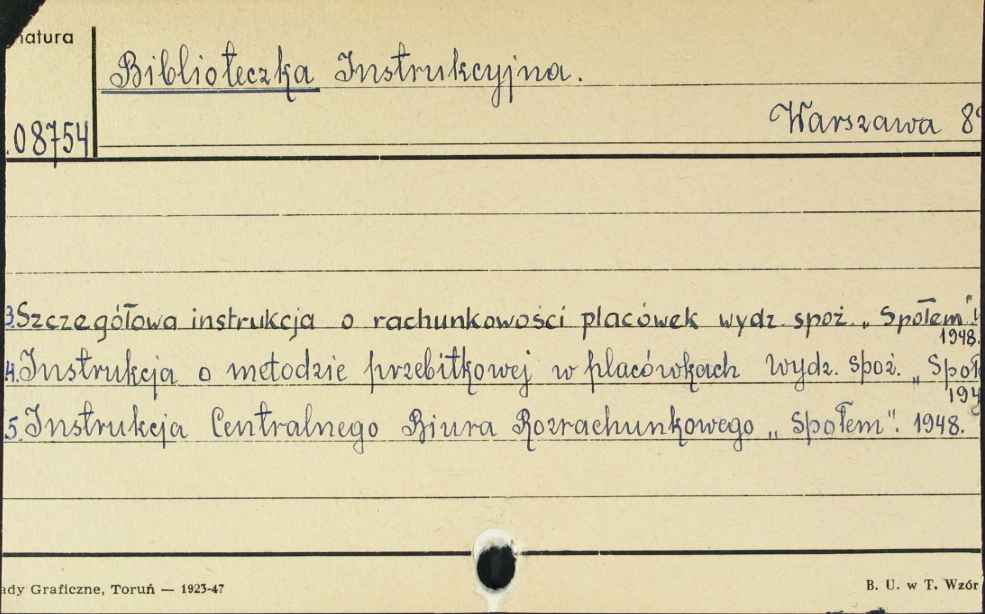 gnatura
Biblioteczka Instrukcyjna.
.08754
Warszawa 8°
3. Szczegółowa instrukcja o rachunkowości placówek wydz. spoż. „Społem".
1948.
4. Instrukcja o metodzie przebitkowej w placówkach wydz. spoż. „Społ
194
5. Instrukcja Centralnego Biura Rozrachunkowego „Społem". 1948.
ady Graficzne, Toruń — 1923-47
B. U. w T. Wzór